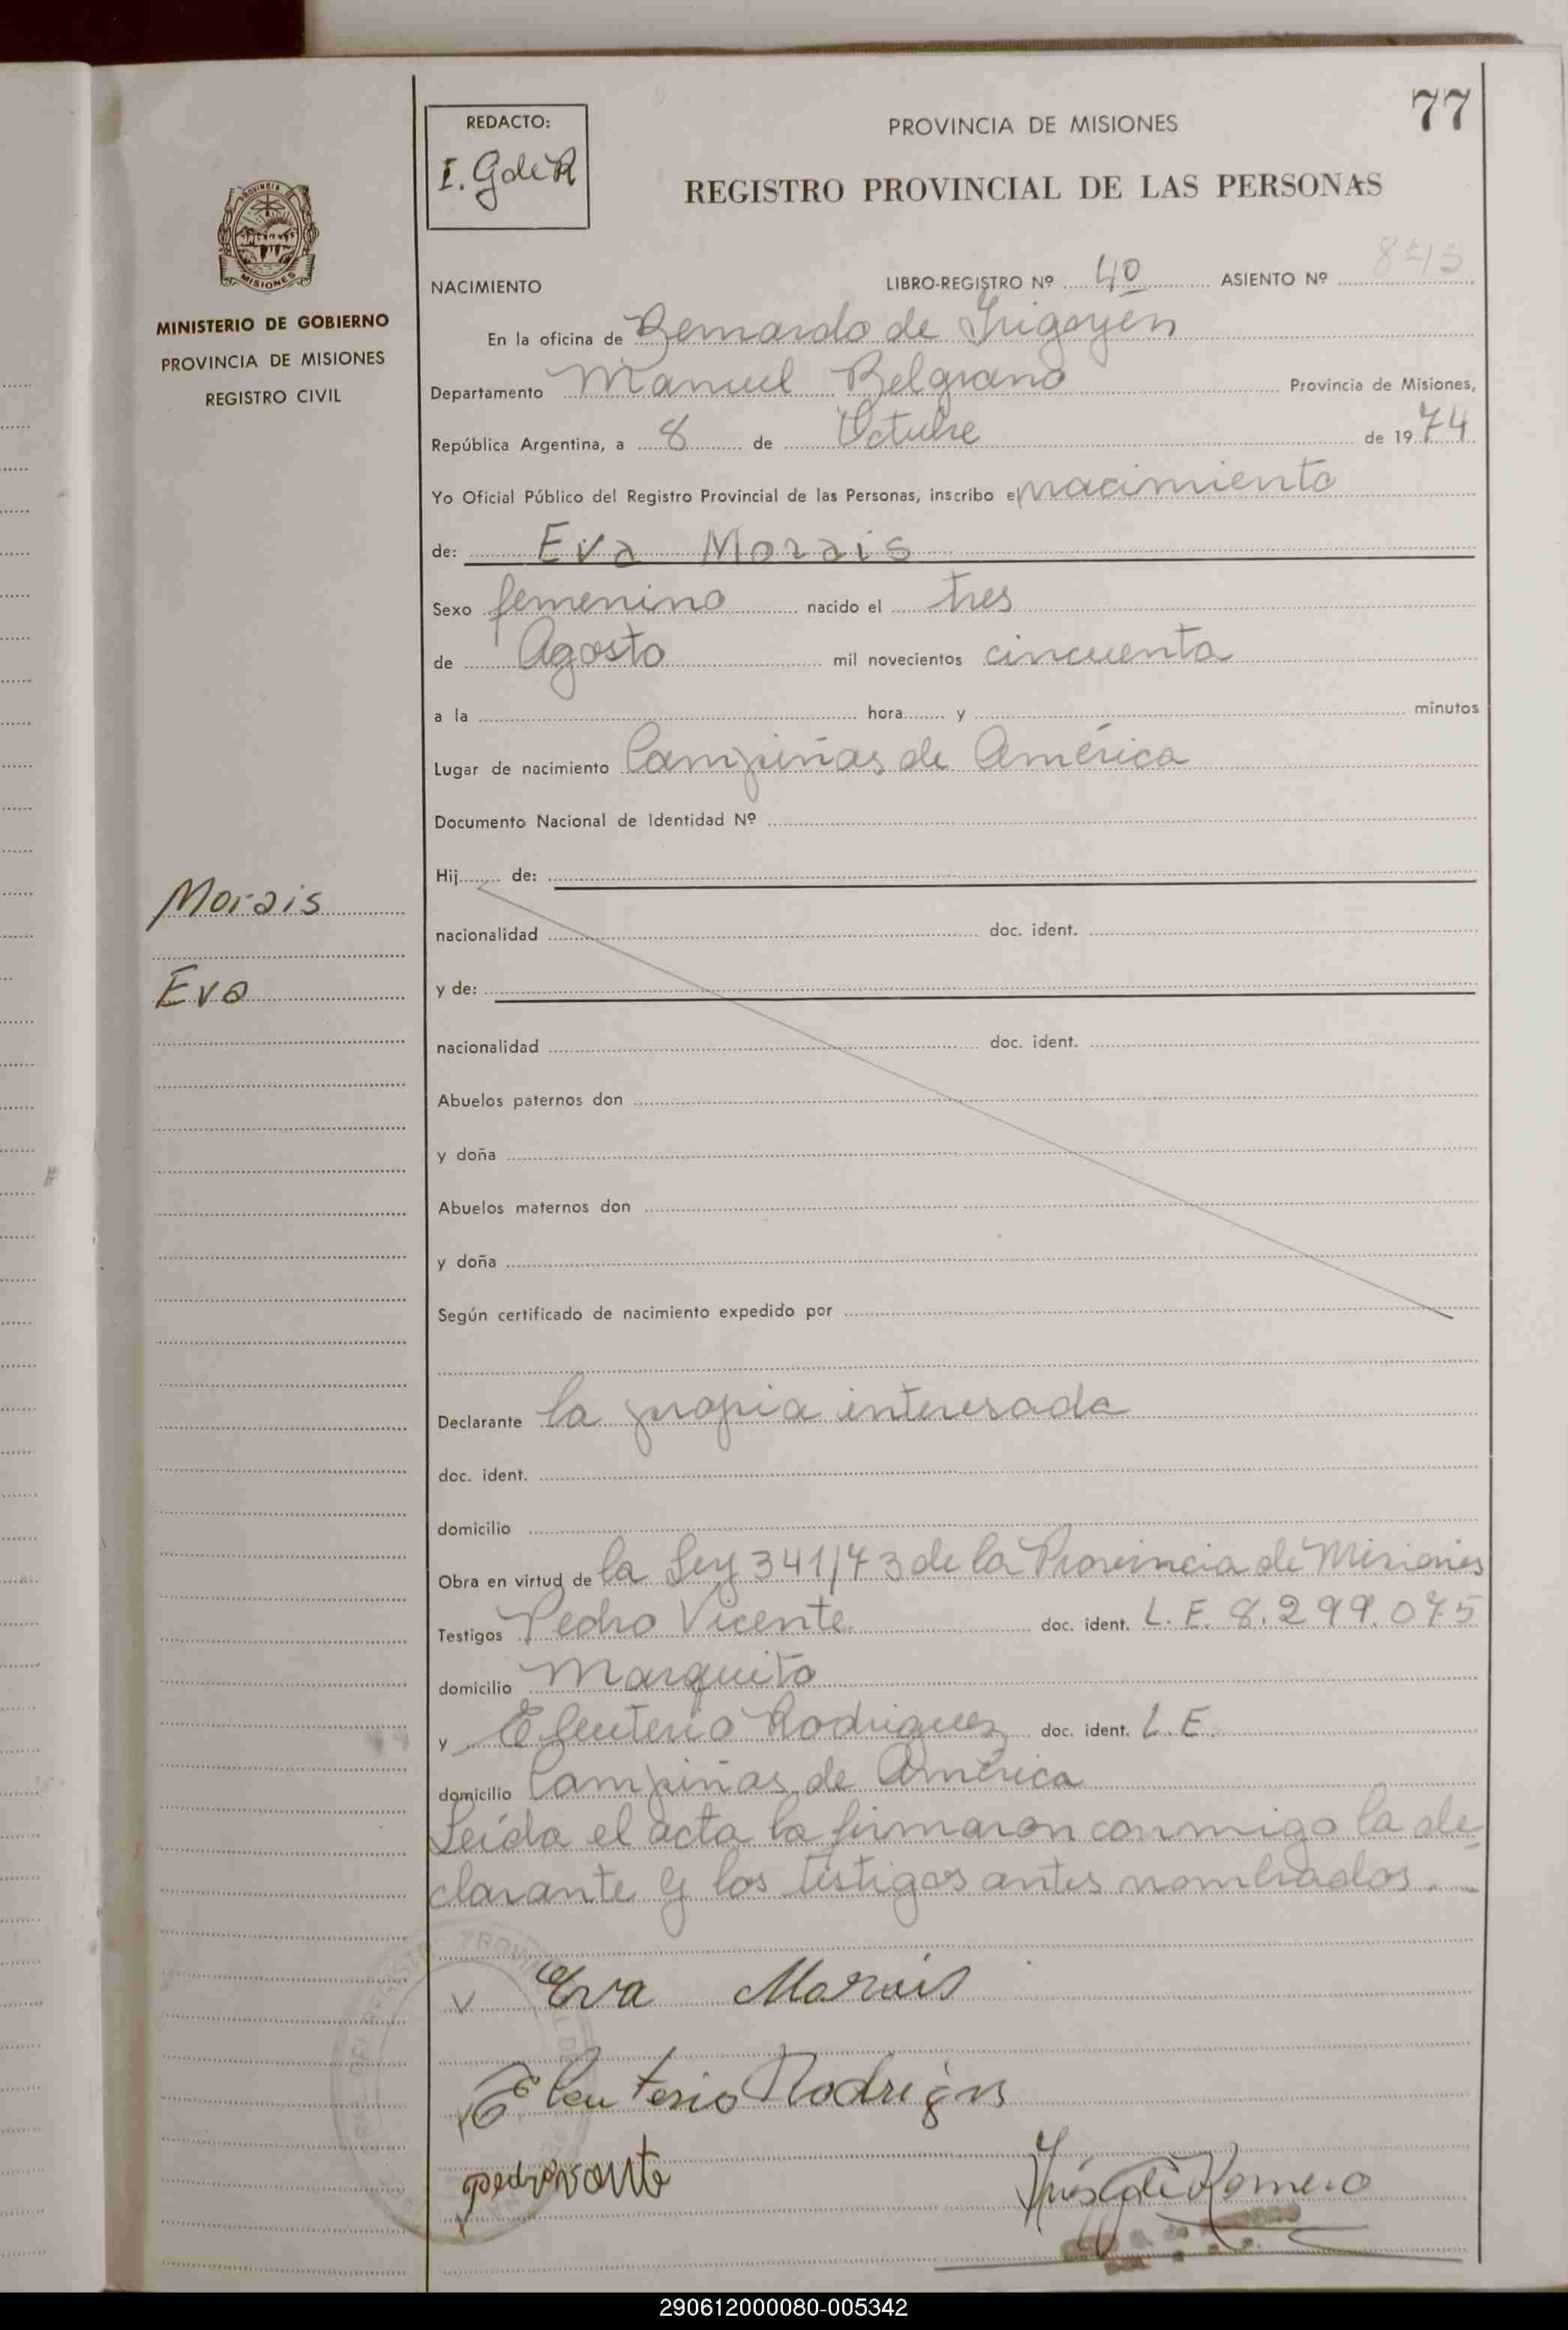 77
REDACTO:
I. GdeR
PROVINCIA DE MISIONES
REGISTRO PROVINCIAL DE LAS PERSONAS
MISIONES
MINISTERIO DE GOBIERNO
PROVINCIA DE MISIONES
REGISTRO CIVIL
NACIMIENTO LIBRO-REGISTRO Nº 40 ASIENTO Nº
En la oficina de Bernardo de Irigoyen
Departamento Manuel Belgrano Provincia de Misiones,
República Argentina, a 8 de Octubre de 1974
Yo Oficial Público del Registro Provincial de las Personas, inscribo el nacimiento
de: Eva Morais
Sexo femenino nacido el tres
de Agosto mil novecientos cincuenta
a la hora y minutos
Lugar de nacimiento Campiñas de América
Documento Nacional de Identidad Nº
Hij de:
Morais
nacionalidad doc. ident.
Eva
y de:
nacionalidad doc. ident.
Abuelos paternos don
y doña
Abuelos maternos don
y doña
Según certificado de nacimiento expedido por
Declarante la propia interesada
doc. ident.
domicilio
Obra en virtud de la Ley 341/73 de la Provincia de Misiones
Testigos Pedro Vicente doc. ident. L.E. 8.299.075
domicilio Marquito
y Eleuterio Rodriguez doc. ident. L.E.
domicilio Campiñas de América
Leída el acta la firmaron conmigo la de
clarante y los testigos antes nombrados.
Eva Morais
Eleuterio Rodrigus
Inés G de Romero
290612000080-005342